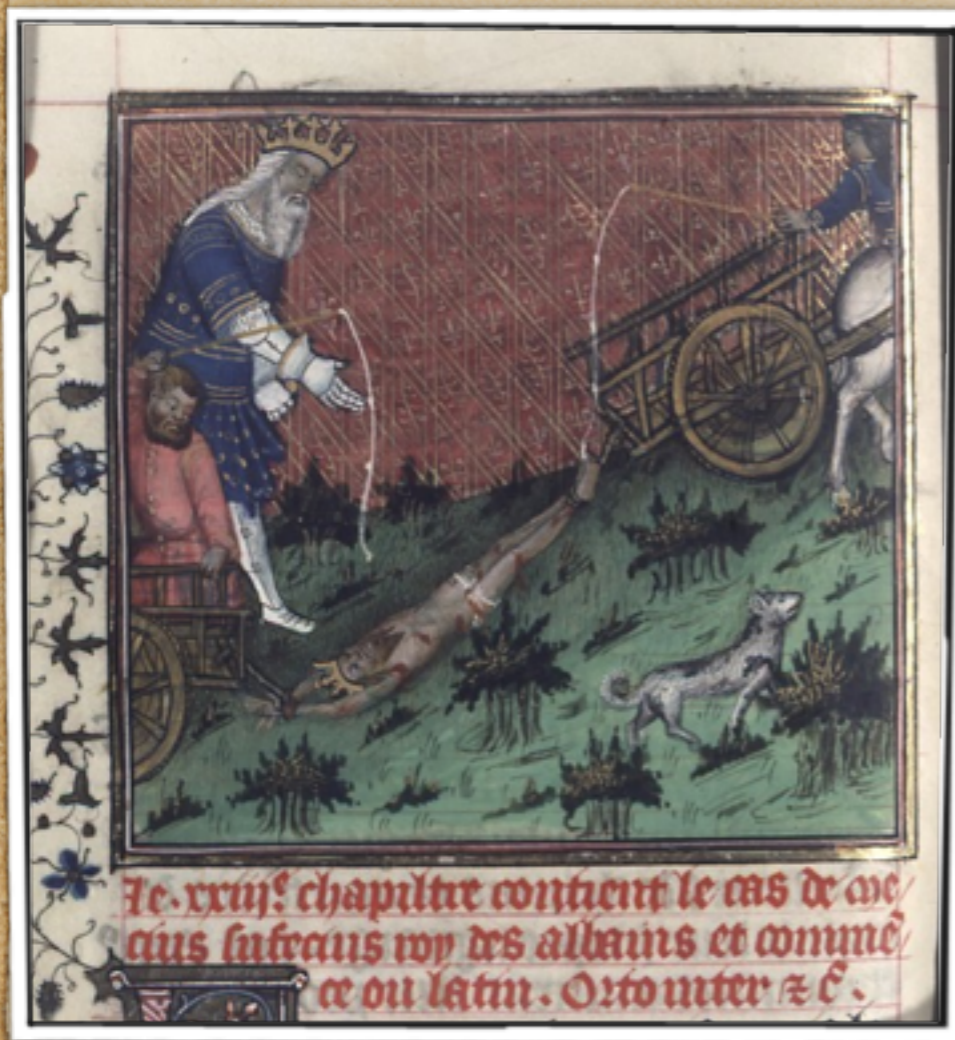 Le .xxiij.e chapiltre contient le cas de me
cius sufecius roy des albains et commē
ce ou latin. Orto inter ⁊ c̄.